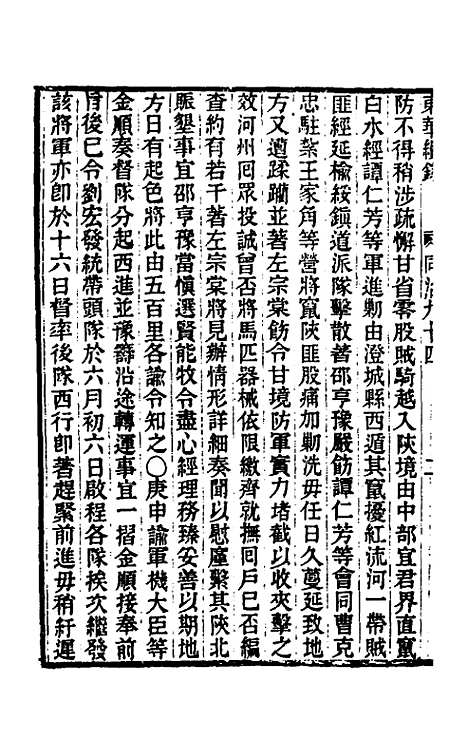 東華續錄 同治九十四
防不得稍涉疏懈甘省零股賊騎越入陝境由中部宜君界直竄
白水經譚仁芳等軍進勦由澄城縣西遁其竄擾紅流河一帶賊
匪經延榆綏鎭道派隊擊散著邵亨豫嚴飭譚仁芳等會同曹克
忠駐紮王家角等營將竄陝匪股痛加勦洗毋任日久蔓延致地
方又遭蹂躪並著左宗棠飭令甘境防軍實力堵截以收夾擊之
效河州回眾投誠曾否將馬匹器械依限繳齊就撫回戶已否編
查約有若干著左宗棠將見辦情形詳細奏聞以慰廑繫其陝北
賑墾事宜邵亨豫當愼選賢能牧令盡心經理務臻妥善以期地
方日有起色將此由五百里各諭令知之〇庚申諭軍機大臣等
金順奏督隊分起西進並豫籌沿途轉運事宜一摺金順接奉前
旨後已令劉宏發統帶頭隊於六月初六日啟程各隊挨次繼發
該將軍亦卽於十六日督率後隊西行卽著趕緊前進毋稍紆遲